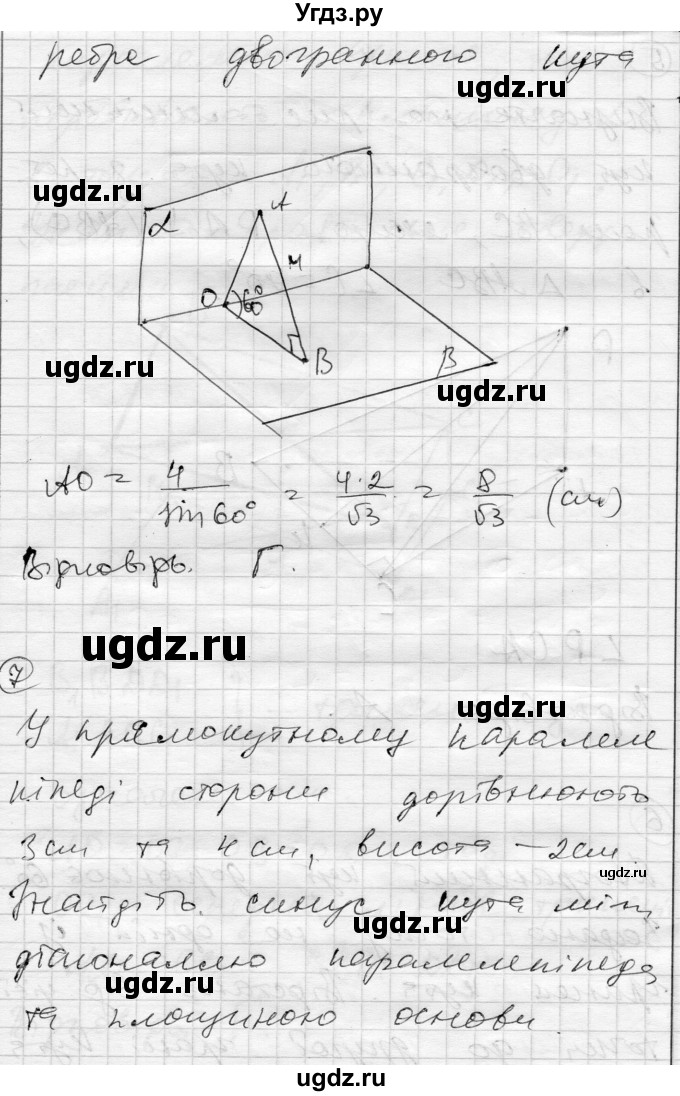 Угдз.ру
ребра двогранного кута
ugdz.ru
ugdz.ru
α
A
M
O
60°
B
β
ugdz.ru
ugdz.ru
AO = 4/sin60° = 4·2/√3 = 8/√3 (см)
Відповідь. Г.
ugdz.ru
7
ugdz.ru
У прямокутному паралеле
піпеді сторони дорівнюють
3см та 4см, висота – 2см.
ugdz.ru
Знайдіть синус кута між
ugdz.ru
діагоналлю паралелепіпеда
ugdz.ru
та площиною основи.
ugdz.ru